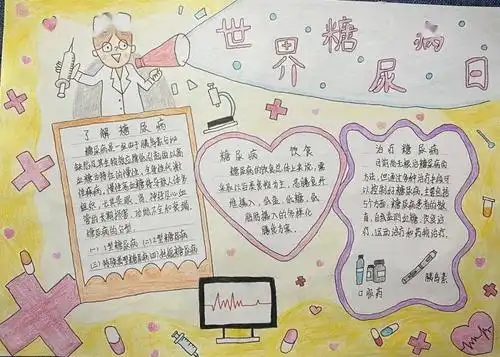 世界糖尿病日
了解糖尿病
糖尿病是一组由于胰岛素分泌
缺陷及其生物效应降低引起的以高
血糖为特征的慢性，全身性代谢
性疾病，慢性高血糖将导致人体多
组织，尤其是眼，肾，神经及心血
管的长期损害，功能不全和衰竭，
糖尿病的分型：
（一）1型糖尿病（二）2型糖尿病
（三）特殊类型糖尿病（四）妊娠糖尿病
糖尿病 饮食
糖尿病的饮食总体上来说，要
采取以日常食粮为主，
低摄入，低盐，低糖，低
脂肪摄入的多样化
膳食方案。
治疗糖尿病
目前尚无根治糖尿病的
方法，但通过多种治疗手段可
以控制好糖尿病，主要包括
5个方面，糖尿病患者的教
育，自我监测血糖，饮食治
疗，运动治疗和药物治疗。
口服药
胰岛素